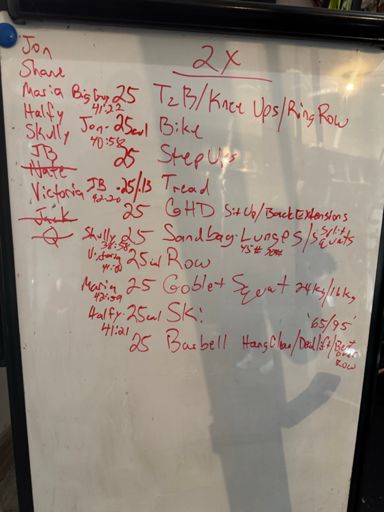 Jon
2X
Shane
Maria Big Guy 25 T2B/Knee Ups/Ring Row
Halfy 41:22
Skully Jon- 25cal Bike
40:58
JB 25 Step Ups
Nate
Victoria JB - 25/13 Tread
42:20
Jack 25 GHD Sit Up/Back Extensions
Q Skully 25 Sandbag Lunges/Split Squats
38:58 45# 30#
Victoria 25cal Row
41:01
Maria 25 Goblet Squat 24kg/16kg
42:59
Halfy 25cal Ski
41:21 '65/95'
25 Barbell Hang Clean/Deadlift/Bent over Row